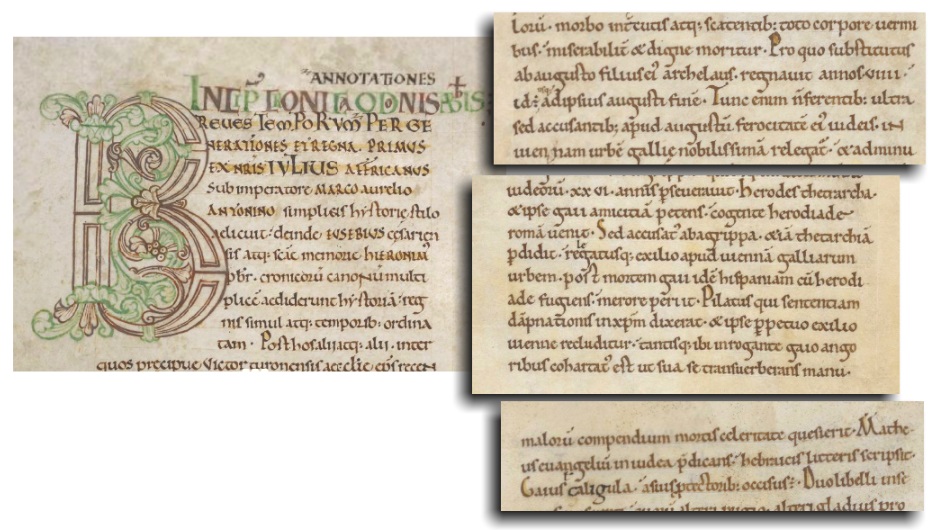 ANNOTATIONES
INCIP CRONICA ODONIS ABBIS
BREVES TEMPORUM PER GE
NERATIONES ET REGNA. PRIMUS
EX NRIS IULIUS AFFRICANUS
sub imperatore MARCO aurelio
ANTONINO simplicis hystorie stilo
edicuit. deinde EUSEBIUS cesarien
sis atq; scae memorie HIERONIM'
pbr. cronicorum canonum multi
plice aediderunt hystoriā. reg
nis simul atq; temporib; ordina
tam. Post hos alii atq; alii. inter
quos precipue Victor turonensis aecclie eps recen
morbo intercutis atq; scatentib; toto corpore vermi
bus. miserabilit & digne moritur. Pro quo substitutus
ab augusto filius ei' archelaus. regnavit annos. viiii.
id; ad ipsius augusti finē. Tunc enim n ferentib; ultra
sed accusantib; apud augustū ferocitatē ei' iudeis. in
viennam urbē gallie nobilissimā relegat'. & ad minu
iudeorū. xxvi. annis pseveravit. Herodes thetrarcha.
& ipse gaii amicitiā petens. cogente herodiade
romā venit. Sed accusat' ab agrippa. & iā thetrarchiā
pdidit. relegatusq; exilio apud viennā galliarum
urbem. post mortem gaii idē hispaniam cū herodi
ade fugiens. merore periit. Pilatus qui sententiam
dāpnationis in xpm dixerat. & ipse ppetuo exilio
vienne recluditur. tantisq; ibi inrogante gaio ango
ribus cohartat' est ut sua se transverberans manu.
malorū compendium mortis celeritate quesierit. Mathe
us evangeliū in iudea pdicans. hebraicis litteris scripsit.
Gaius caligula. a suis ptectorib; occisus. Duo libelli inse